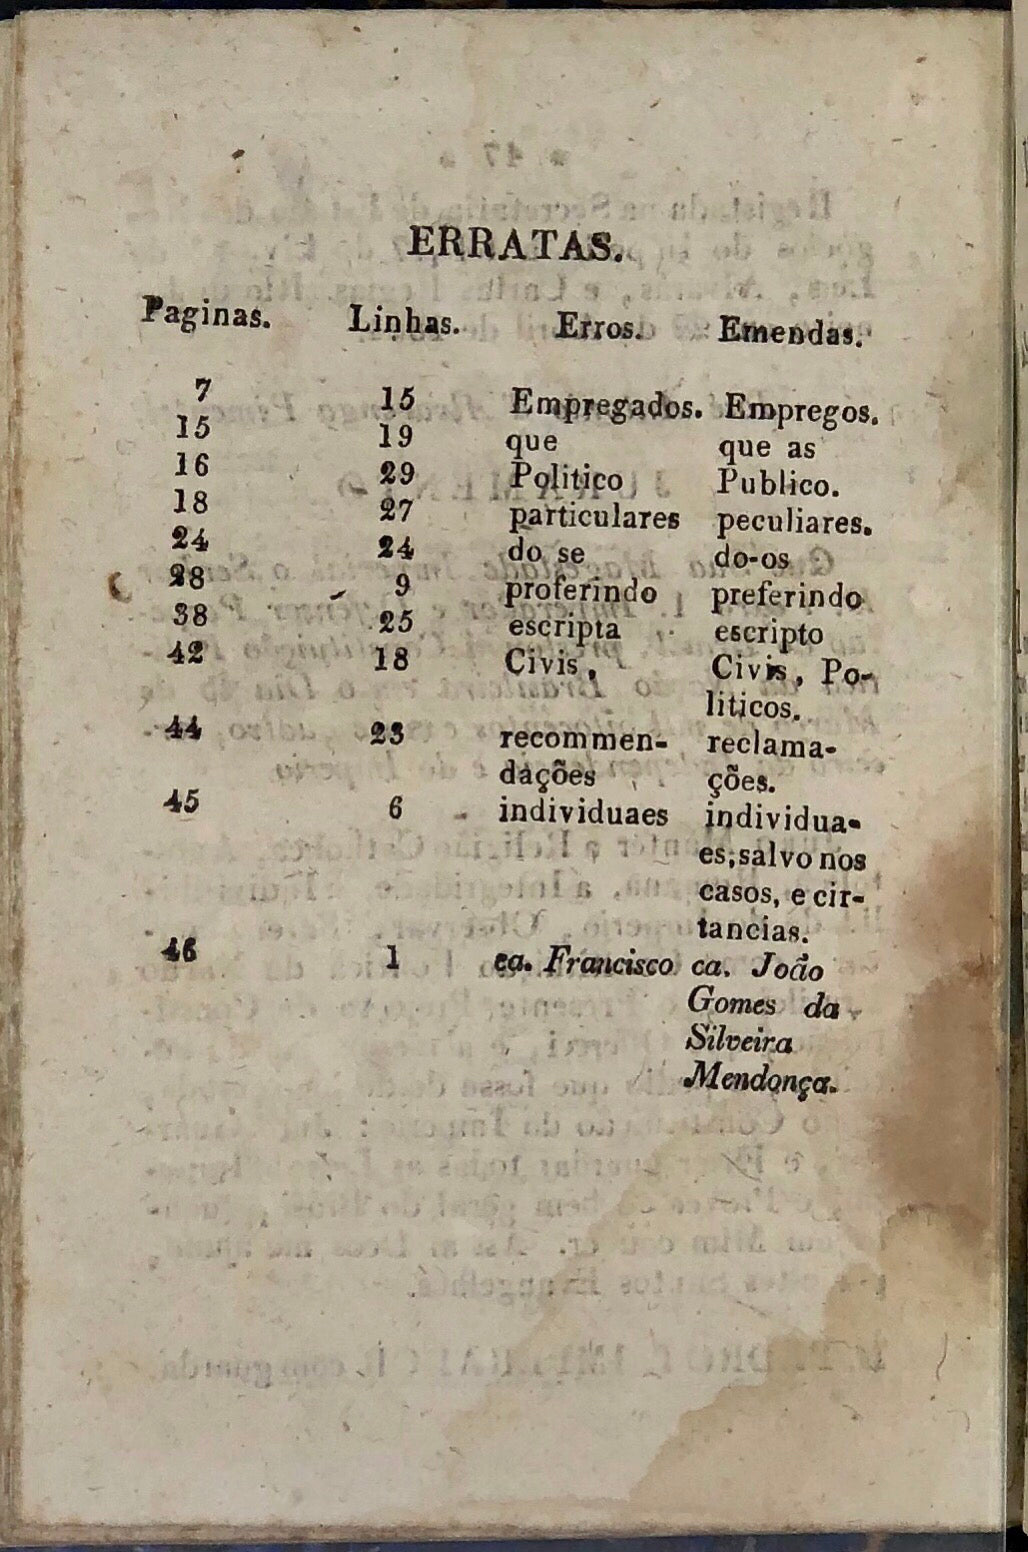 ERRATAS.
Paginas. Linhas. Erros. Emendas.
7 15 Empregados. Empregos.
15 19 que que as
16 29 Politico Publico.
18 27 particulares peculiares.
24 24 do se do-os
28 9 proferindo preferindo
38 25 escripta escripto
42 18 Civis, Civis, Po-
liticos.
44 23 recommen- reclama-
dações ções.
45 6 individuaes individua-
es, salvo nos
casos, e cir-
tancias.
46 1 ca. Francisco ca. João
Gomes da
Silveira
Mendonça.